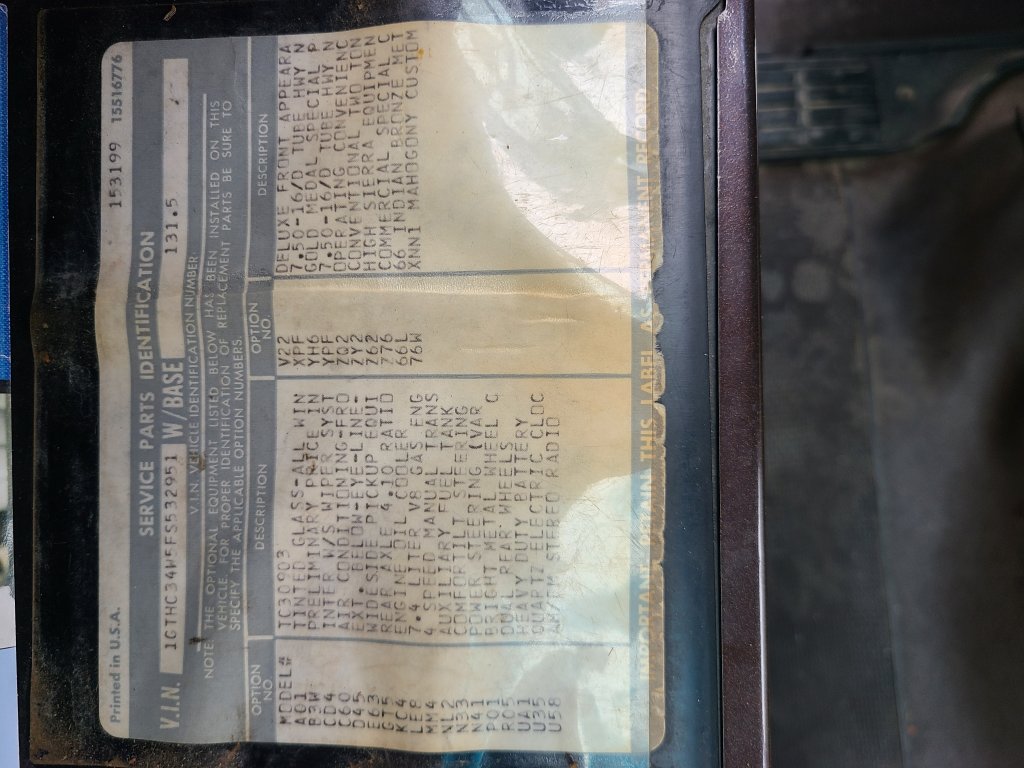 Printed in U.S.A. 153199 15516776
SERVICE PARTS IDENTIFICATION
V.I.N. 1GTHC34W5FS532951 W/BASE 131.5
V.I.N. VEHICLE IDENTIFICATION NUMBER
NOTE: THE OPTIONAL EQUIPMENT LISTED BELOW HAS BEEN INSTALLED ON THIS
VEHICLE. FOR PROPER IDENTIFICATION OF REPLACEMENT PARTS BE SURE TO
SPECIFY THE APPLICABLE OPTION NUMBERS.
OPTION NO. DESCRIPTION OPTION NO. DESCRIPTION
MODEL# TC30903 V22 DELUXE FRONT APPEARA
A01 TINTED GLASS-ALL WIN XPF 7.50-16/D TUBE HWY N
B3W PRELIMINARY PRICE IN YH6 GOLD MEDAL SPECIAL P
CD4 INTER W/S WIPER SYST YPF 7.50-16/D TUBE HWY N
C60 AIR CONDITIONING-FRO ZQ2 OPERATING CONVENIENC
D45 EXT. BELOW-EYE-LINE- ZY2 CONVENTIONAL TWO TON
E63 WIDESIDE PICKUP EQUI Z62 HIGH SIERRA EQUIPMEN
GT5 REAR AXLE 4.10 RATIO Z76 COMMERCIAL SPECIAL C
KC4 ENGINE OIL COOLER 66L 66 INDIAN BRONZE MET
LE8 7.4 LITER V8 GAS ENG 76W XNNI MAHOGONY CUSTOM
MM4 4 SPEED MANUAL TRANS
NL2 AUXILIARY FUEL TANK
N33 COMFORTILT STEERING
N41 POWER STEERING (VAR
P01 BRIGHT METAL WHEEL C
R05 DUAL REAR WHEELS
UA1 HEAVY DUTY BATTERY
U35 QUARTZ ELECTRIC CLOC
U58 AM/FM STEREO RADIO
IMPORTANT: RETAIN THIS LABEL AS PERMANENT RECORD